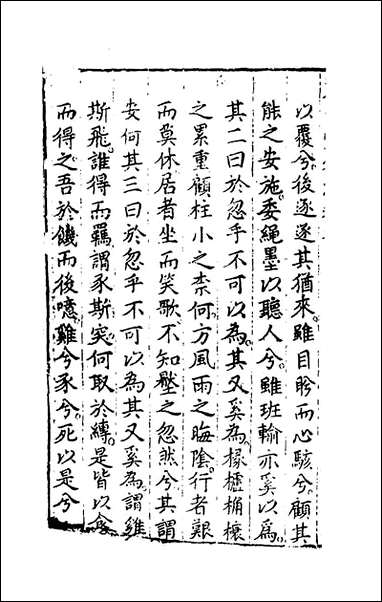 以覆兮後逐逐其猶來雖目眕而心駭兮顧其
能之安施委繩墨以聽人兮雖班輸亦奚以為
其二曰於忽乎不可以為其又奚為椽櫨桷榱
之累重顧柱小之柰何方風雨之晦陰行者艱
而莫休居者坐而笑歌不知壓之忽然兮其謂
安何其三曰於忽乎不可以為其又奚為謂雞
斯飛誰得而羈謂豕斯突何取於縳是皆以食
而得之吾於饑而後噫雞兮豕兮死以是兮